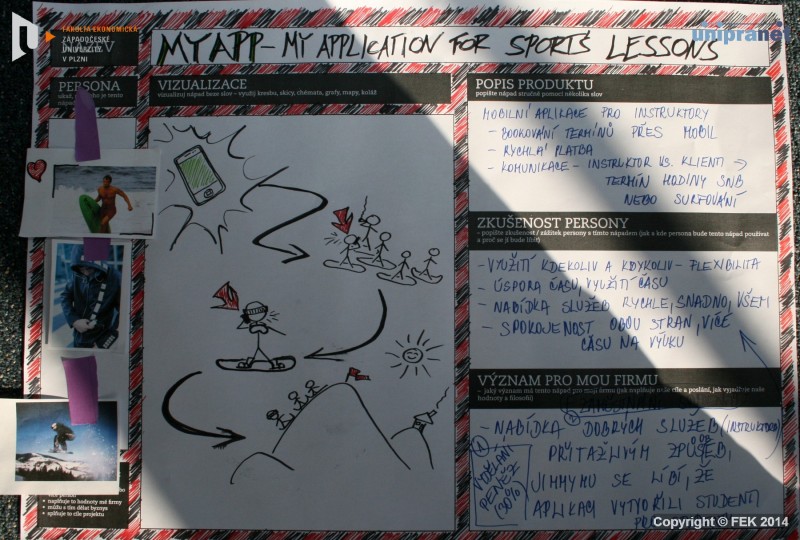 FAKULTA EKONOMICKÁ
ZÁPADOČESKÉ
UNIVERZITY
V PLZNI
unipranet
MYAPP - MY APPLICATION FOR SPORTS LESSONS
PERSONA
VIZUALIZACE
vizualizuj nápad beze slov – využij kresbu, skici, schémata, grafy, mapy, koláž
POPIS PRODUKTU
popište nápad stručně pomocí několika slov
MOBILNÍ APLIKACE PRO INSTRUKTORY
- BOOKOVÁNÍ TERMÍNŮ PŘES MOBIL
- RYCHLÁ PLATBA
- KOMUNIKACE - INSTRUKTOR VS. KLIENTI →
TERMÍN HODINY SNB
NEBO SURFOVÁNÍ
ZKUŠENOST PERSONY
– popište zkušenost / zážitek persony s tímto nápadem (jak a kde persona bude tento nápad používat
a proč se jí bude líbit)
- VYUŽITÍ KDEKOLIV A KDYKOLIV - FLEXIBILITA
- ÚSPORA ČASU, VYUŽITÍ ČASU
- NABÍDKA SLUŽEB RYCHLE, SNADNO, VŠEM
- SPOKOJENOST OBOU STRAN, VÍCE
ČASU NA VÝUKU
VÝZNAM PRO MOU FIRMU
– jaký význam má tento nápad pro moji firmu (jak naplňuje naše cíle a poslání, jak vyjadřuje naše
hodnoty a filosofii)
- NABÍDKA DOBRÝCH SLUŽEB (INSTRUKTORŮ)
PŘITAŽLIVÝM ZPŮSOBEM,
JIMMYMU SE LÍBÍ, ŽE
APLIKACI VYTVOŘILI STUDENTI
VYDĚLÁNÍ
PENĚZ
(30%)
• naplňuje to hodnoty mé firmy
• můžu s tím dělat byznys
• splňuje to cíle projektu
Copyright © FEK 2014